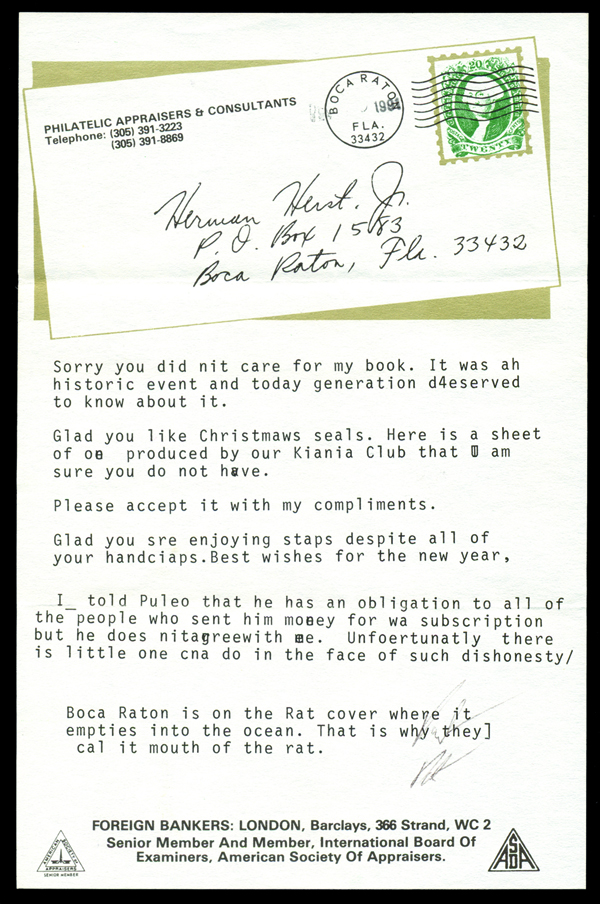 PHILATELIC APPRAISERS & CONSULTANTS
Telephone: (305) 391-3223
(305) 391-8869
BOCA RATON
1991
FLA.
33432
20
TWENTY
Herman Herst, Jr.
P. O. Box 1583
Boca Raton, Fla. 33432
Sorry you did nit care for my book. It was ah
historic event and today generation d4eserved
to know about it.
Glad you like Christmaws seals. Here is a sheet
of one produced by our Kiania Club that I am
sure you do not have.
Please accept it with my compliments.
Glad you sre enjoying staps despite all of
your handciaps.Best wishes for the new year,
I_ told Puleo that he has an obligation to all of
the people who sent him money for wa subscription
but he does nitagreewith me. Unfoertunatly there
is little one cna do in the face of such dishonesty/
Boca Raton is on the Rat cover where it
empties into the ocean. That is why they]
cal it mouth of the rat.
FOREIGN BANKERS: LONDON, Barclays, 366 Strand, WC 2
Senior Member And Member, International Board Of
Examiners, American Society Of Appraisers.
AMERICAN SOCIETY APPRAISERS
SENIOR MEMBER
ASDA